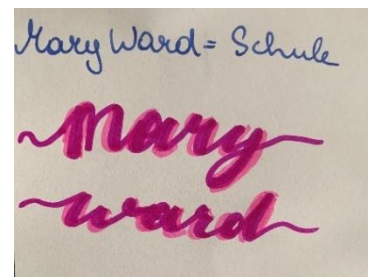 Mary Ward= Schule
Mary
ward